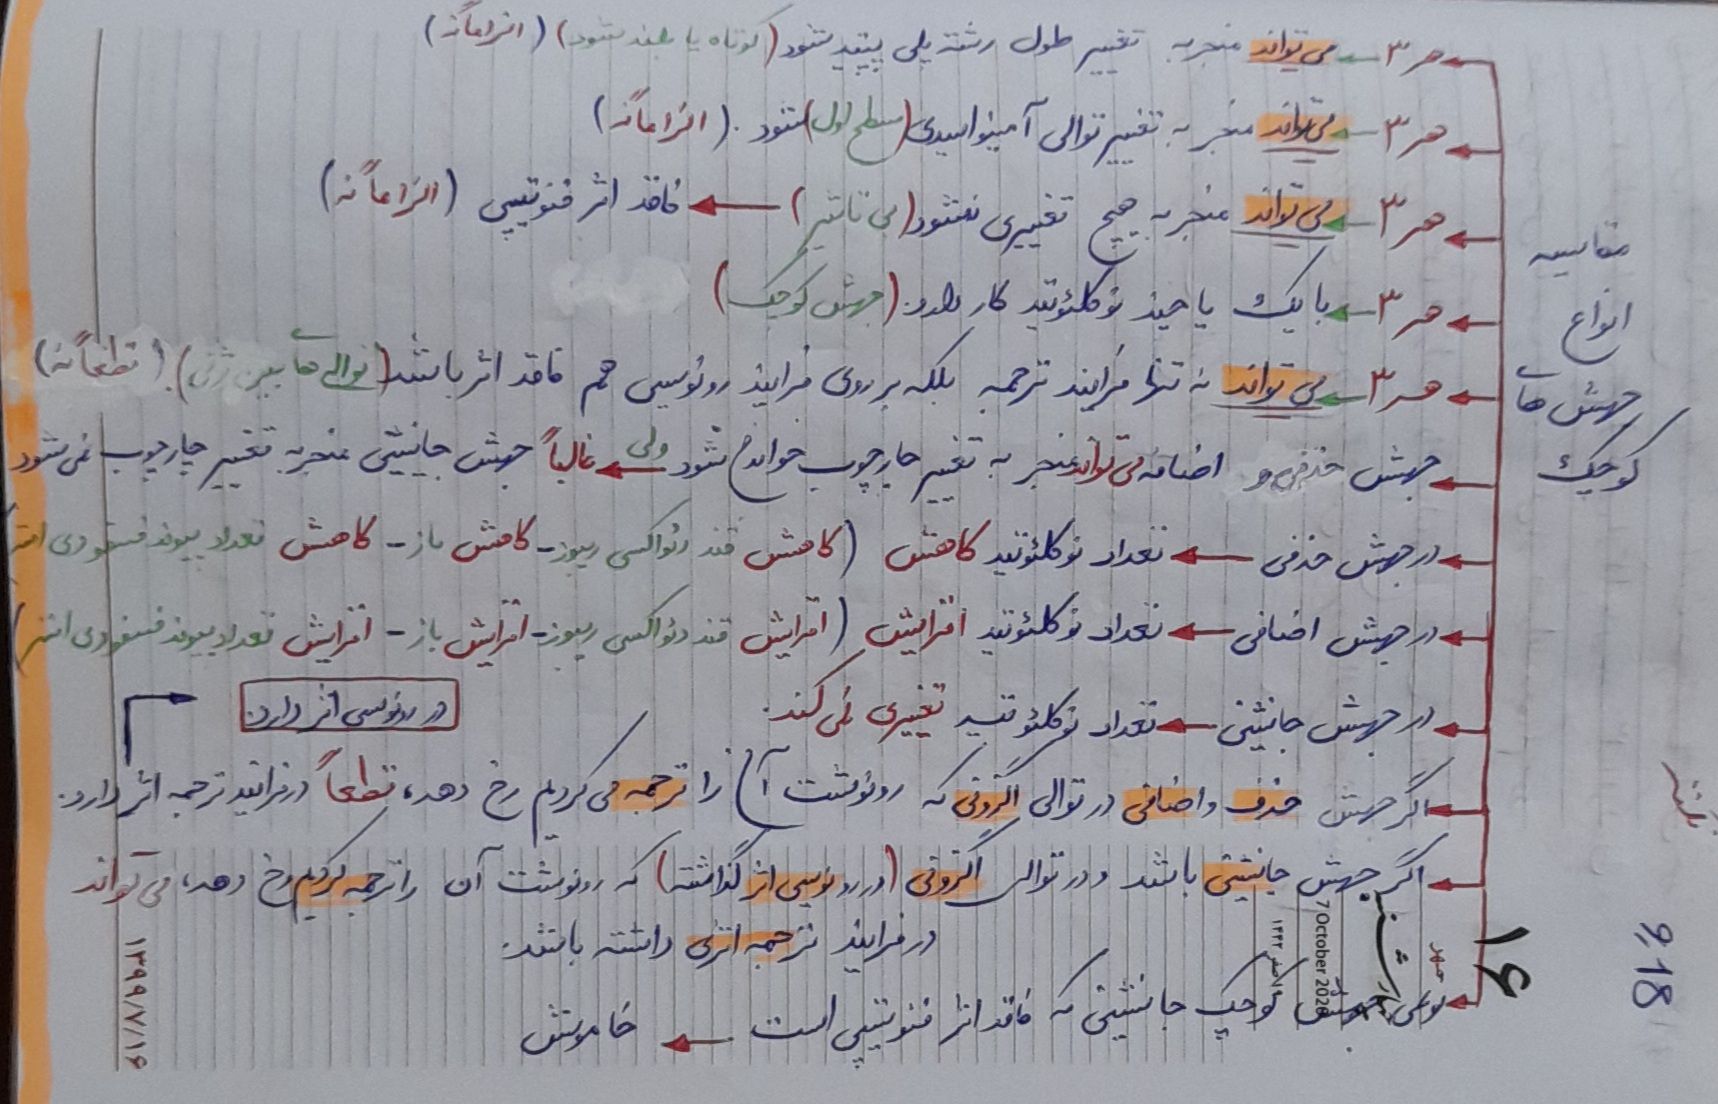 هر ۳ ← می تواند منجر به تغییر طول رشته پلی پپتید شود (کوتاه یا بلند شود) (الزاماً نه)
هر ۳ ← می تواند منجر به تغییر توالی آمینواسیدی (سطح اول) شود. (الزاماً نه)
هر ۳ ← می تواند منجر به هیچ تغییری نشود (بی تاثیر) ← فاقد اثر فنوتیپی (الزاماً نه)
مقایسه
انواع
جهش های
کوچک
هر ۳ ← با یک یا چند نوکلئوتید کار دارد. (جهش کوچک)
هر ۳ ← می تواند نه تنها فرایند ترجمه بلکه بر روی فرایند رونویسی هم فاقد اثر باشد (توالی های بین ژنی). (قطعاً نه)
جهش حذفی و اضافه می تواند منجر به تغییر چارچوب خواندن شود ولی ← غالباً جهش جانشینی منجر به تغییر چارچوب نمی شود
در جهش حذفی ← تعداد نوکلئوتید کاهش (کاهش قند دئواکسی ریبوز - کاهش باز - کاهش تعداد پیوند فسفودی استر
در جهش اضافی ← تعداد نوکلئوتید افزایش (افزایش قند دئواکسی ریبوز - افزایش باز - افزایش تعداد پیوند فسفودی استر)
در جهش جانشینی ← تعداد نوکلئوتید تغییری نمی کند.
در رونویسی اثر دارد.
اگر جهش حذف و اضافی در توالی اگزونی که رونوشت آن را ترجمه می کردیم رخ دهد، قطعاً در فرایند ترجمه اثر دارد.
اگر جهش جانشینی باشد و در توالی اگزونی (در رونویسی اثر گذاشته) که رونوشت آن را ترجمه کردیم رخ دهد، می تواند
در فرایند ترجمه اثری داشته باشد.
نوعی جهش کوچک جانشینی که فاقد اثر فنوتیپی است ← خاموش
۱۶
مهر
7 October 2020
۱۳۹۹/۷/۱۶